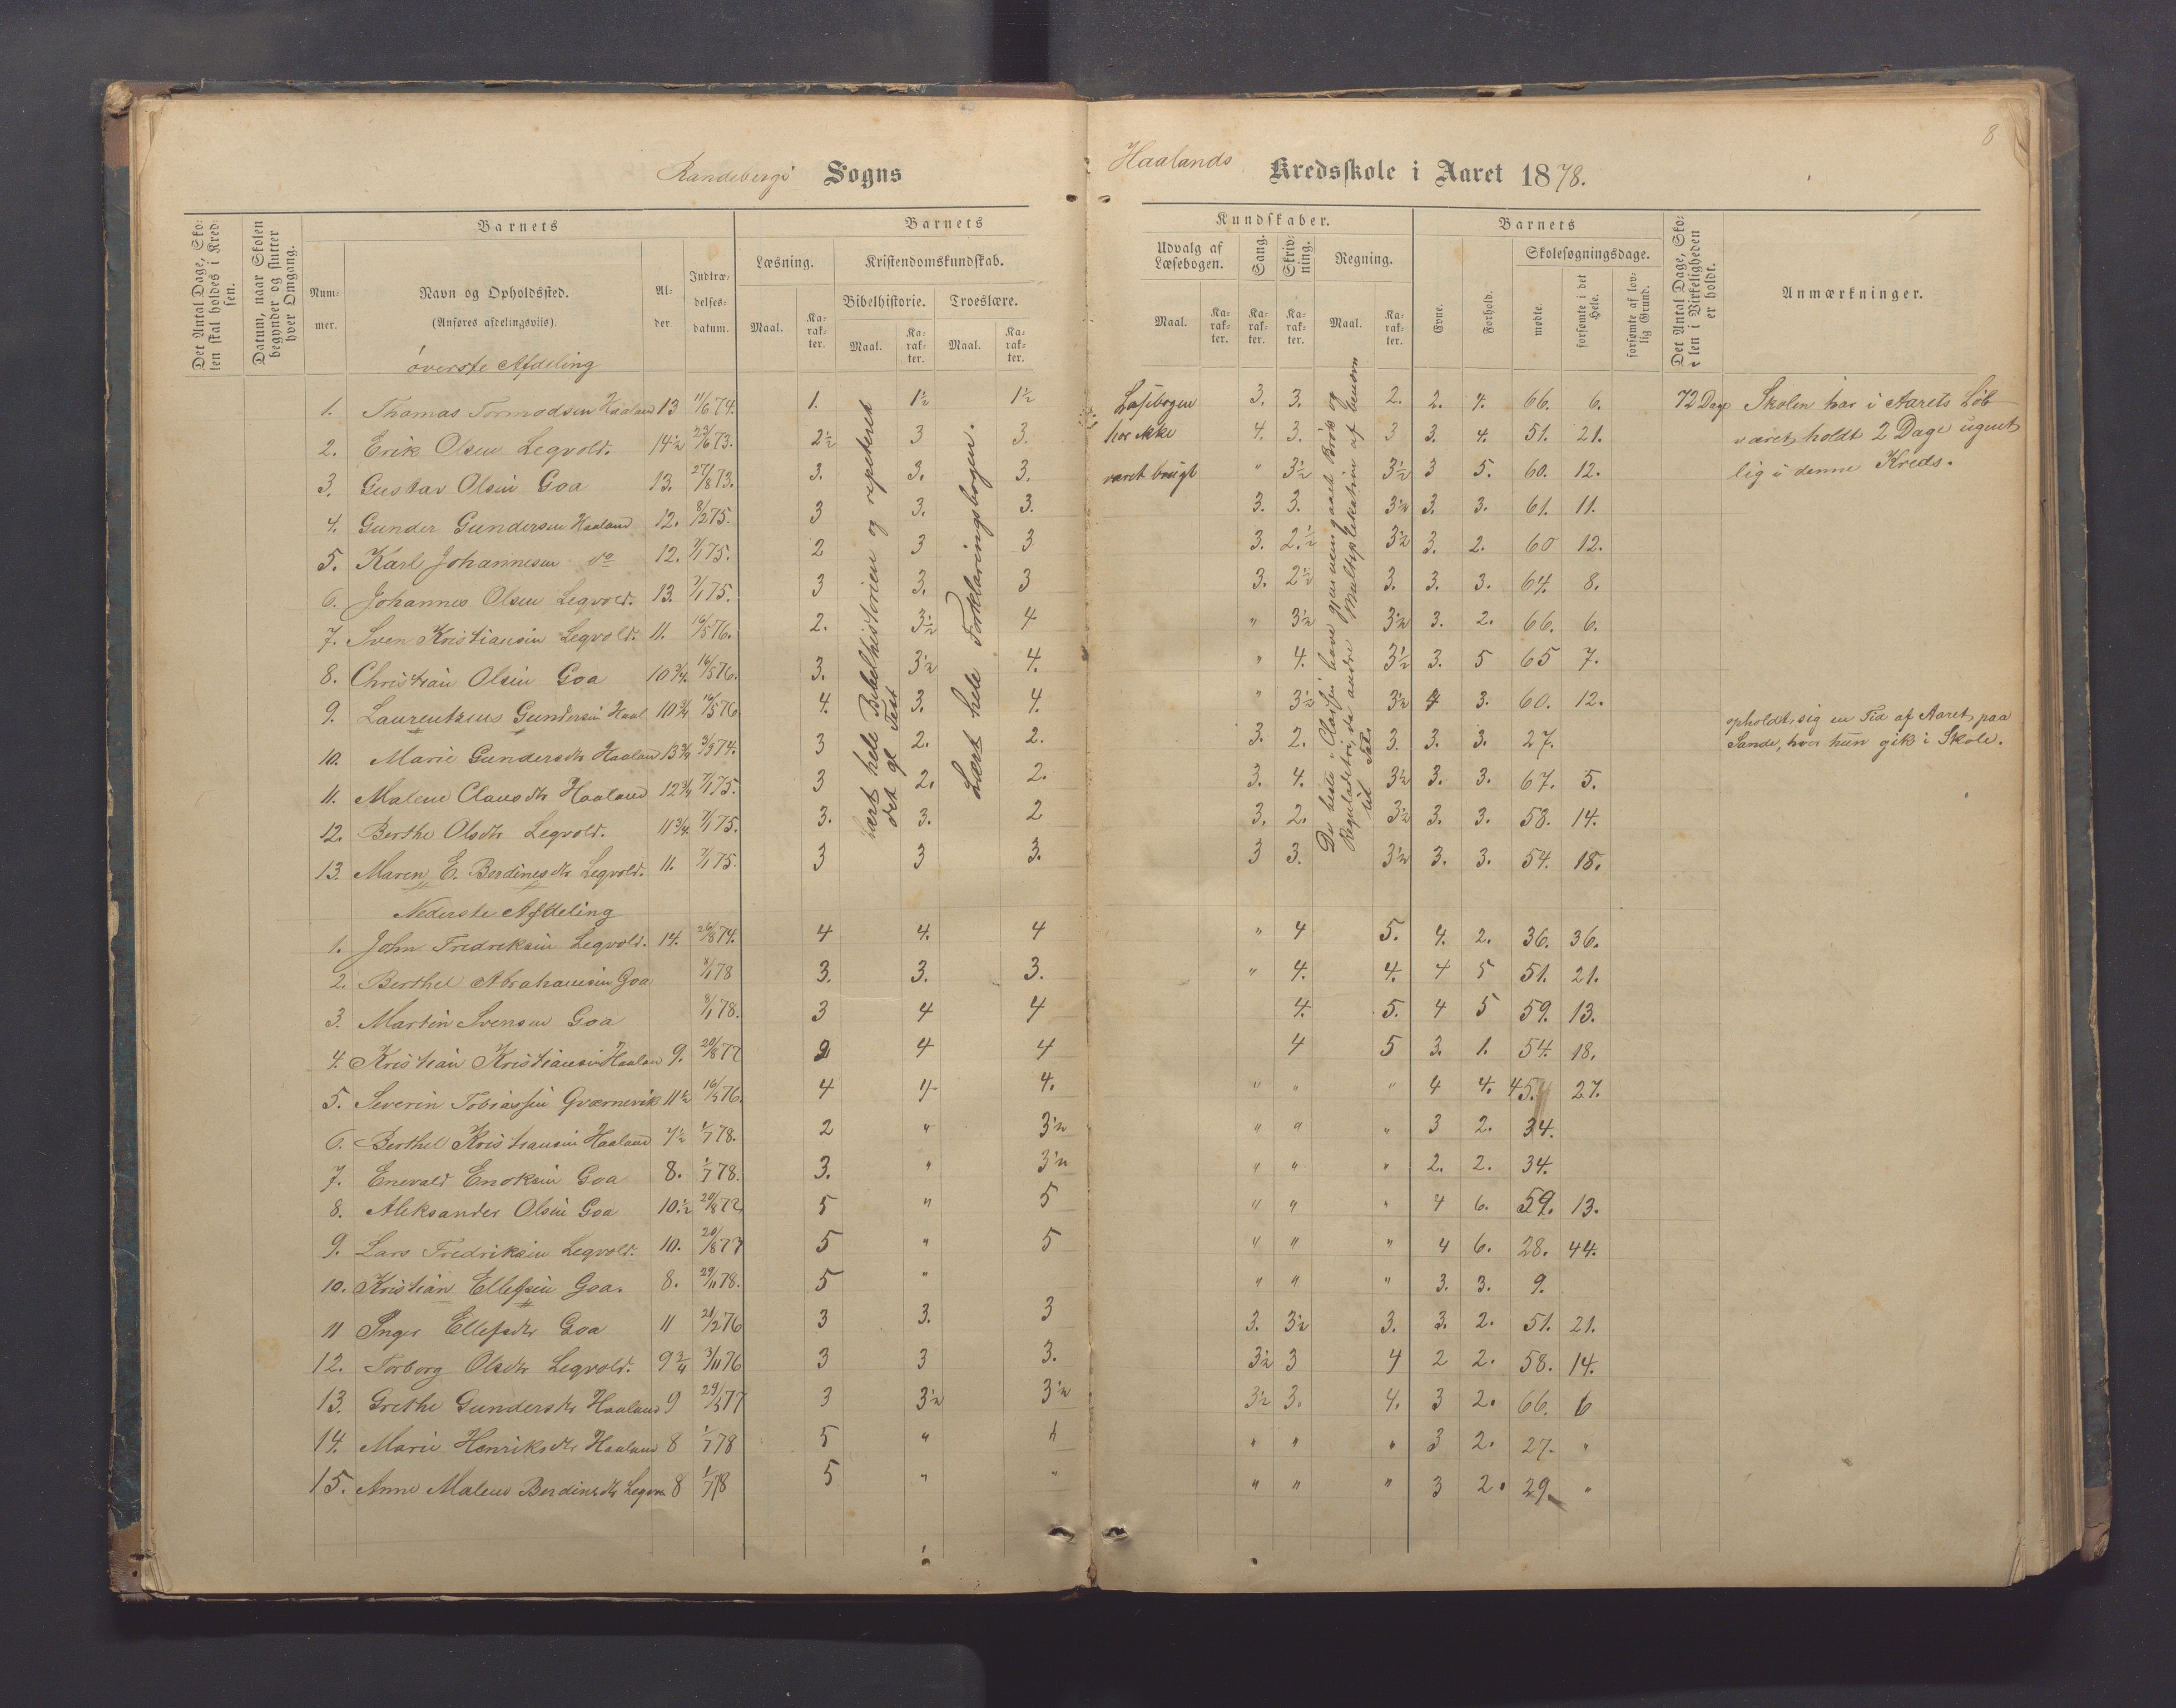 8
Randebergs Sogns
Haalands Kredsskole i Aaret 1878.
Det Antal Dage, Skolen skal holdes i Kredsen.
Datum, naar Skolen begynder og slutter hver Omgang.
Barnets
Nummer.
Navn og Opholdssted.
(Anføres afdelingsvils).
Alder.
Indtrædelsesdatum.
Barnets
Læsning.
Maal.
Karakter.
Kristendomskundskab.
Bibelhistorie.
Troeslære.
Maal.
Karakter.
Maal.
Karakter.
Kundskaber.
Udvalg af Læsebogen.
Maal.
Karakter.
Sang.
Karakter.
Skrivning.
Karakter.
Regning.
Maal.
Karakter.
Barnets
Evne.
Forhold.
Skolesøgningsdage.
mødte.
forsømte i det Hele.
forsømte af lovlig Grund.
Det Antal Dage, Skolen i Virkeligheden er holdt.
Anmærkninger.
øverste Afdeling
1. Thomas Tormodsen Haaland 13 11/6 74. 1. 1½ 1½ Læsebogen 3. 3. 2. 2. 4. 66. 6. 72 Dage Skolen har i Aarets Løb
2. Erik Olsen Legvold. 14½ 23/6 73. 2½ 3 3. har ikke 4. 3. 3 3. 4. 51. 21. været holdt 2 Dage ugent
3. Gustav Olsen Goa 13. 27/8 73. 3. 3. 3. været brugt " 3½ 3½ 3 5. 60. 12. lig i denne Kreds.
4. Gunder Gundersen Haaland 12. 8/2 75. 3 3. 3. 3. 3. 3½ 3. 3. 61. 11.
5. Karl Johannesen do 12. 7/1 75. 2 3 3 3. 2.½ 3½ 3. 2. 60 12.
6. Johannes Olsen Legvold. 13. 7/1 75. 3 3. 3 3. 2½ 3. 3. 3. 64. 8.
7. Sven Kristiansen Legvold. 11. 16/5 76. 2. 3½ 4 " 3½ 3½ 3. 2. 66. 6.
8. Christian Olsen Goa 10¾ 16/5 76. 3. 3½ 4. " 4. 3½ 3. 5 65 7.
9. Laurentzius Gundersen Haal 10¾ 16/5 76 4. 3. 4. " 3½ 3½ 4 3. 60. 12.
10. Marie Gundersdtr Haaland 13¾ 3/3 74. 3 2. 2. 3. 2. 3. 3. 3. 27. opholdt sig en Tid af Aaret paa
Sande, hvor hun gik i Skole.
11. Malene Clausdtr Haaland 12¾ 7/1 75. 3 2. 2. 3. 4. 3½ 3. 3. 67. 5.
12. Berthe Olsdtr Legvold. 11¾ 7/1 75. 3. 3. 2 3. 2. 3½ 3. 3. 58. 14.
13. Maren E. Berdinesdtr Legvold. 11. 7/1 75. 3 3 3. 3 3. 3½ 3. 3. 54. 18.
Lært hele Bibelhistorien og repeteret
det gl Test
Lært hele Forklaringsbogen.
De beste i Classen have gjennemgaaet Brøk og
Reguladetri, de andre Multiplikation af benevn
te Tal.
Nederste Afdeling
1. John Fredreksen Legvold. 14. 26/8 74. 4 4. 4 " 4 5. 4. 2. 36. 36.
2. Berthel Abrahamsen Goa 8/1 78 3. 3. 3. " 4. 4. 4 5 51. 21.
3. Martin Svensen Goa 8/1 78. 3 4 4 4. 5. 4 5 59. 13.
4. Kristian Kristiansen Haalan 9. 20/8 77 2 4 4 4 5 3. 1. 54. 18.
5. Severin Tobiassen Gværnevik 11½ 16/5 76. 4 4 4. " " " 4 4. 45. 27.
6. Berthel Kristiansen Haaland 7½ 1/7 78. 2 " 3½ " " " 3 2. 34.
7. Enevald Enoksen Goa 8. 1/7 78. 3. " 3½ " " " 2. 2. 34.
8. Aleksander Olsen Goa 10.½ 20/8 77 5 " 5 " " " 4 6. 59. 13.
9. Lars Fredriksen Legvold. 10. 20/8 77 5 " 5 " " " 4 6. 28. 44.
10. Kristian Ellefsen Goa. 8. 29/11 78. 5 " " " " 3. 3. 9.
11 Inger Ellefsdtr Goa 11 21/2 76 3 3. 3 3. 3½ 3. 3. 2. 51. 21.
12. Torborg Olsdtr Legvold. 9¾ 3/11 76 3 3 3. 3½ 3 4 2 2. 58. 14.
13. Grethe Gundersdtr Haaland 9 29/5 77 3 3½ 3½ 3½ 3. 4. 3 2. 66. 6
14. Marie Henriksdtr Haaland 8 1/7 78 5 " " " " " 3 2. 27. "
15. Anne Malene Berdinesdtr Legvo 8 1/7 78 5 " " " " " 3 2. 29. "